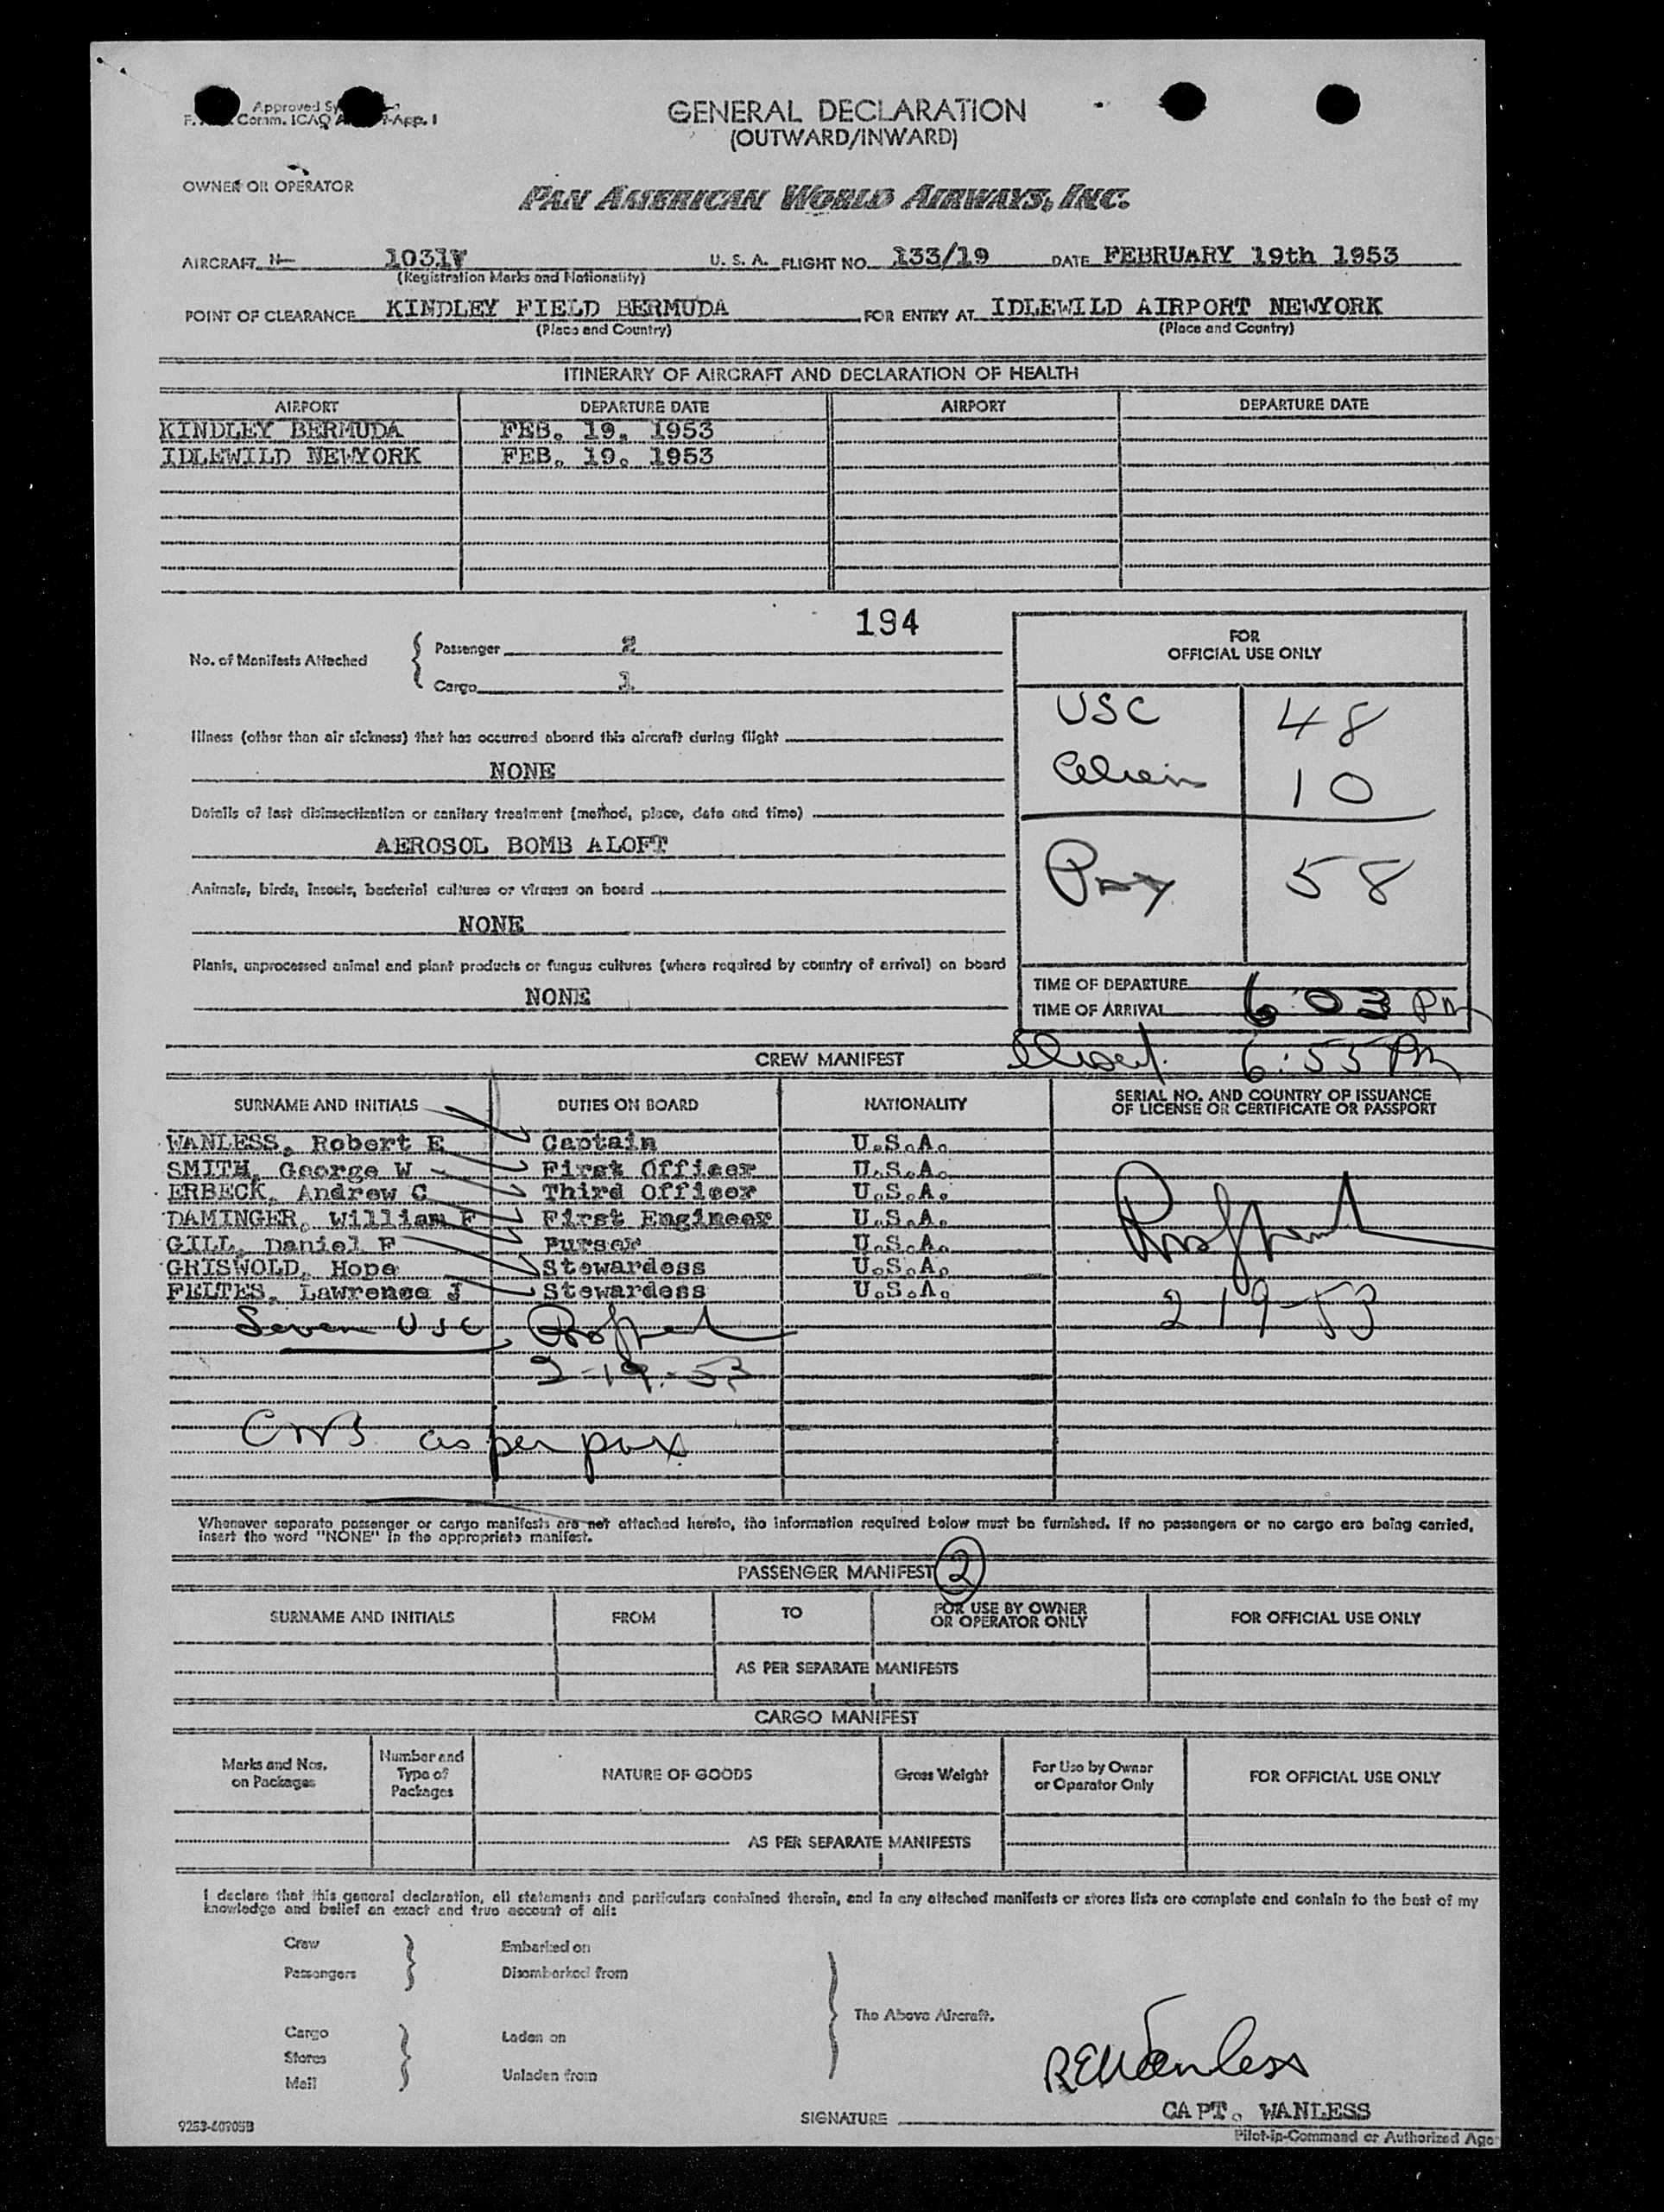 Approved
Comm. ICAO 9-App. 1
GENERAL DECLARATION
(OUTWARD/INWARD)
OWNER OR OPERATOR
PAN AMERICAN WORLD AIRWAYS, INC.
AIRCRAFT N- 1031V U. S. A. FLIGHT NO. 133/19 DATE FEBRUARY 19th 1953
(Registration Marks and Nationality)
POINT OF CLEARANCE KINDLEY FIELD BERMUDA FOR ENTRY AT IDLEWILD AIRPORT NEWYORK
(Place and Country) (Place and Country)
ITINERARY OF AIRCRAFT AND DECLARATION OF HEALTH
AIRPORT DEPARTURE DATE AIRPORT DEPARTURE DATE
KINDLEY BERMUDA FEB. 19. 1953
IDLEWILD NEWYORK FEB. 19. 1953
194
No. of Manifests Attached
Passenger 2
Cargo 1
FOR
OFFICIAL USE ONLY
USC 48
Alien 10
58
Illness (other than air sickness) that has occurred aboard this aircraft during flight
NONE
Details of last disinsectization or sanitary treatment (method, place, date and time)
AEROSOL BOMB ALOFT
Animals, birds, insects, bacterial cultures or viruses on board
NONE
Plants, unprocessed animal and plant products or fungus cultures (where required by country of arrival) on board
NONE
TIME OF DEPARTURE
TIME OF ARRIVAL 6:03 PM
6:55 PM
CREW MANIFEST
SURNAME AND INITIALS DUTIES ON BOARD NATIONALITY SERIAL NO. AND COUNTRY OF ISSUANCE
OF LICENSE OR CERTIFICATE OR PASSPORT
WANLESS, Robert E Captain U.S.A.
SMITH, George W First Officer U.S.A.
ERBECK, Andrew C Third Officer U.S.A.
DAMINGER, William F First Engineer U.S.A.
GILL, Daniel F Purser U.S.A.
GRISWOLD, Hope Stewardess U.S.A.
FELTES, Lawrence J Stewardess U.S.A.
2-19-53
Seven USC
2-19-53
as per pax
Whenever separate passenger or cargo manifests are not attached hereto, the information required below must be furnished. If no passengers or no cargo are being carried,
insert the word "NONE" in the appropriate manifest.
PASSENGER MANIFEST 2
SURNAME AND INITIALS FROM TO FOR USE BY OWNER
OR OPERATOR ONLY FOR OFFICIAL USE ONLY
AS PER SEPARATE MANIFESTS
CARGO MANIFEST
Marks and Nos.
on Packages
Number and
Type of
Packages
NATURE OF GOODS
Gross Weight
For Use by Owner
or Operator Only
FOR OFFICIAL USE ONLY
AS PER SEPARATE MANIFESTS
I declare that this general declaration, all statements and particulars contained therein, and in any attached manifests or stores lists are complete and contain to the best of my
knowledge and belief an exact and true account of all:
Crew Embarked on
Passengers Disembarked from
The Above Aircraft.
Cargo Laden on
Stores
Mail Unladen from
REWanless
SIGNATURE CAPT. WANLESS
Pilot-in-Command or Authorized Age
9253-60705B